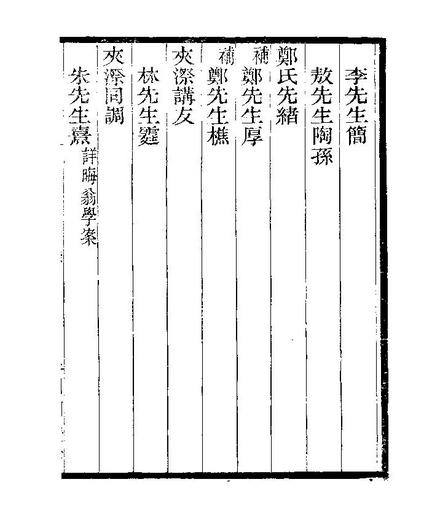 李先生簡
敖先生陶孫
鄭氏先緒
補鄭先生厚
補鄭先生樵
夾漈講友
林先生霆
夾漈同調
朱先生熹詳晦翁學案